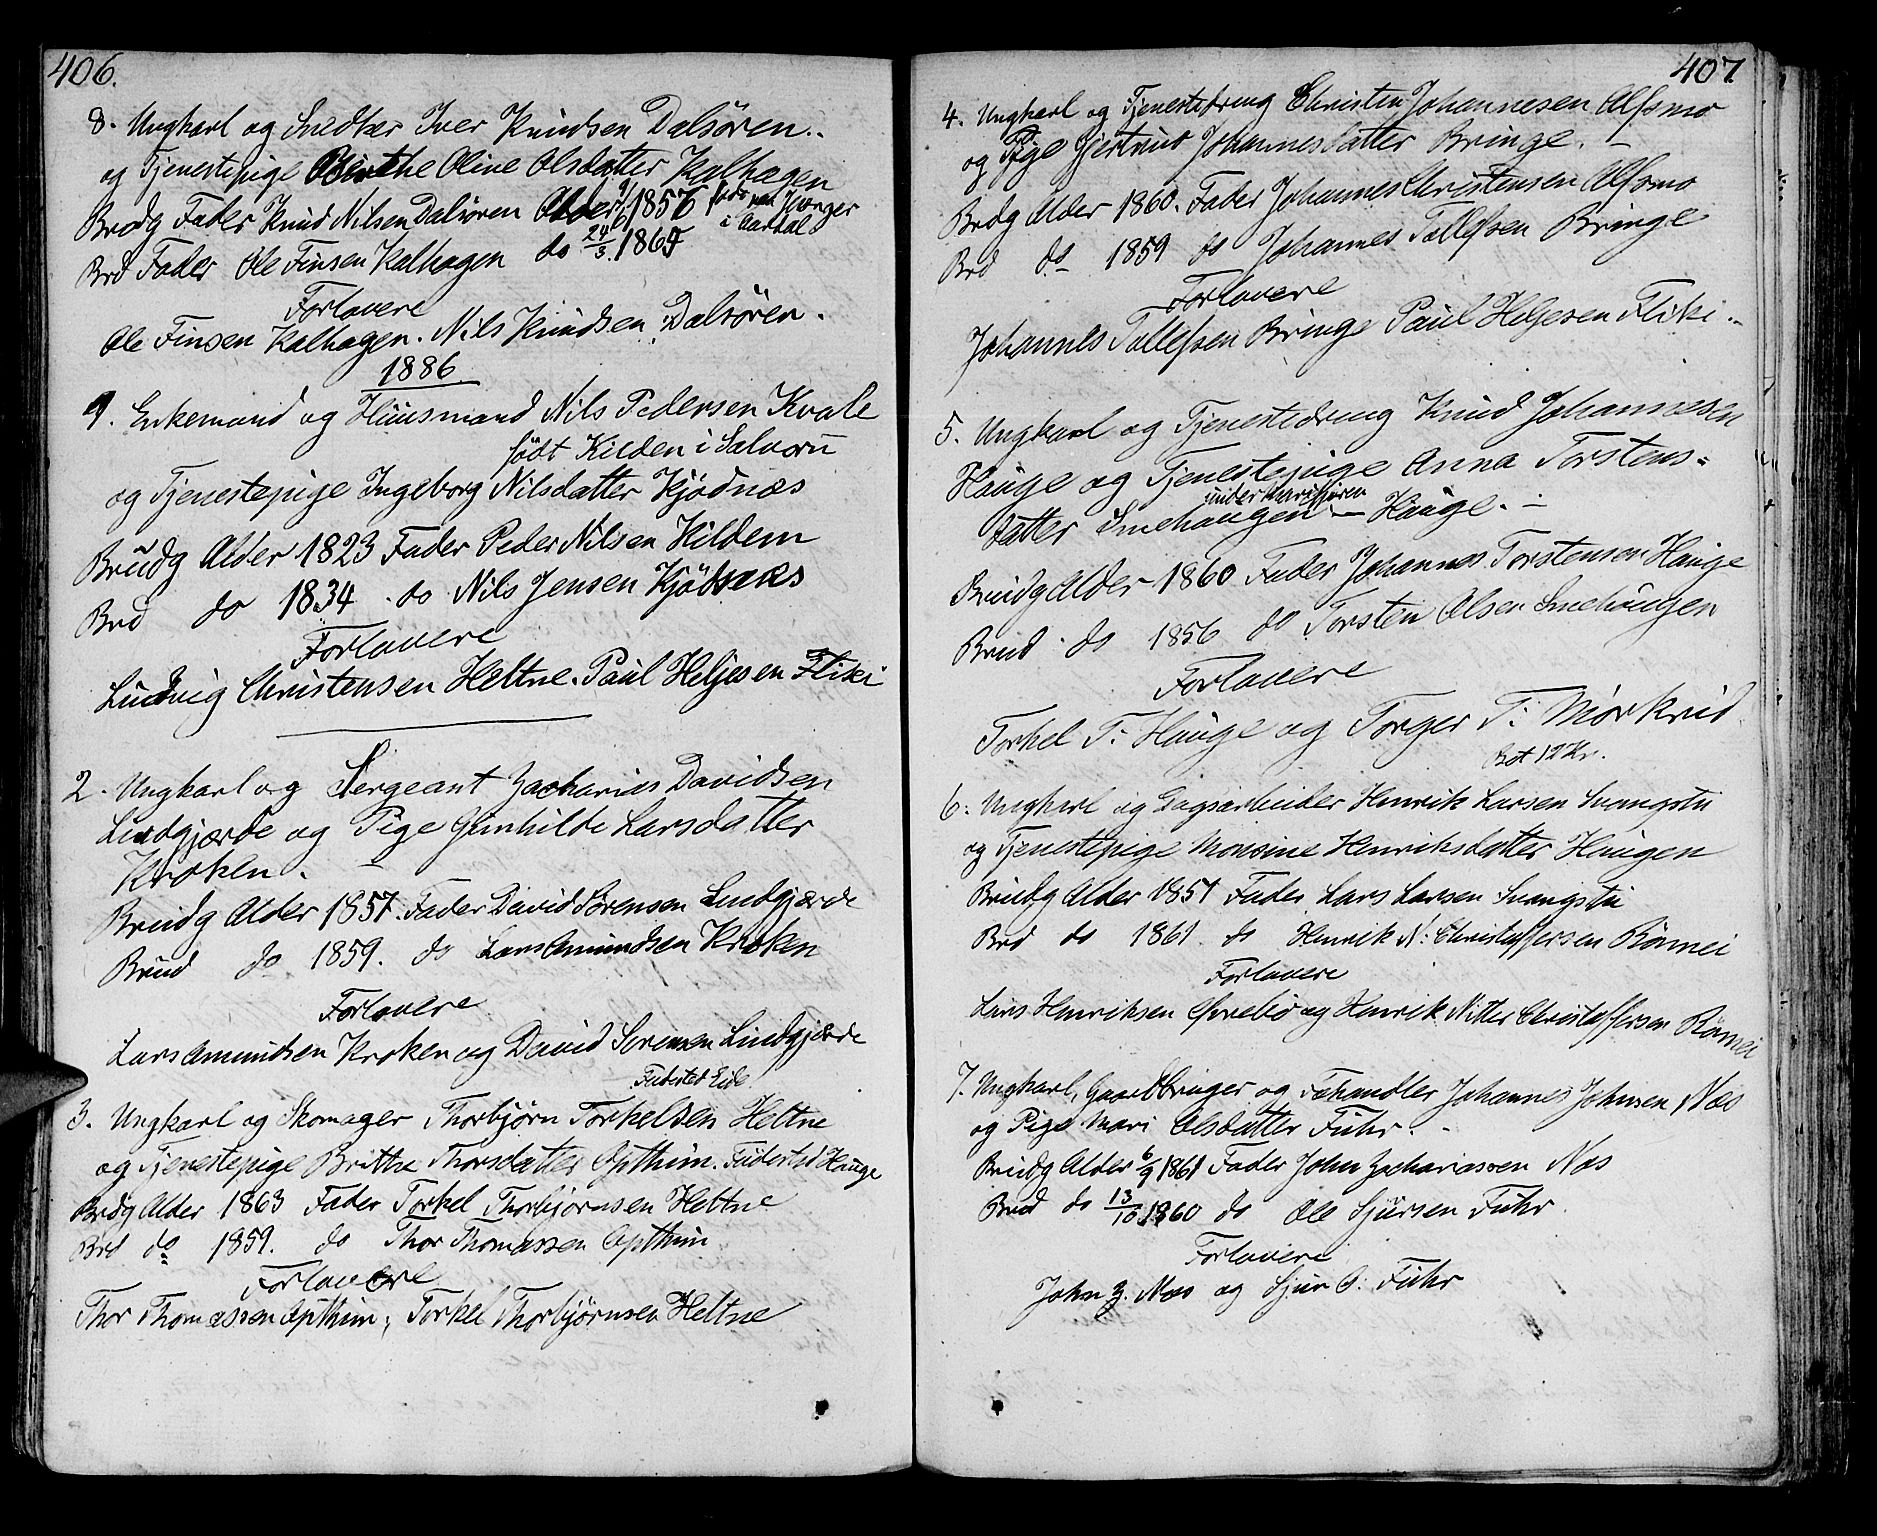 406.
8. Ungkarl og Snedker Iver Knudsen Dalsøren..
og Tjenestepige Birthe Oline Olsdatter Kalhagen
Brdg Fader Knud Nilsen Dalsøren Alder 1857 født paa Urnger
i Aardal
Brd Fader Ole Finsen Kalhagen do 24/3 1864
Forlovere
Ole Finsen Kalhagen. Nils Knudsen Dalsøren.
1886
9. Enkemand og Huusmand Nils Pedersen Kvale
født Kilden i Salvorn
og Tjenestepige Ingeborg Nilsdatter Kjødnæs
Brudg Alder 1823 Fader Peder Nilsen Kildem
Brd do 1834 do Nils Jensen Kjødnæs
Forlovere
Ludvig Christensen Heltne. Paul Heljesen Fliki
2. Ungkarl og Sergeant Zacharias Davidsen
Lindgjærde og Pige Gunhilde Larsdatter
Kroken.
Brudg Alder 1857. Fader David Sørensen Lindgjærde
Brud do 1859. do Lars Amundsen Kroken
Forlovere
Lars Amundsen Kroken og David Sørensen Lindgjærde
Fødested Eide
3. Ungkarl og Skomager Thorbjørn Torkelsen Heltne
og Tjenestepige Brithe Thorsdatter Opthim. Fødested Hauge
Brdg Alder 1863 Fader Torkel Thorbjørnsen Heltne
Brd do 1859. do Thor Thomassen Opthim
Forlovere
Thor Thomassen Opthim, Torkel Thorbjørnsen Heltne
407
4. Ungkarl og Tjenestedreng Christen Johannesen Alfsmo
og Pige Gjertrud Johannesdatter Bringe. –
Brdg Alder 1860. Fader Johannes Christensen Alfsmo
Brd do 1859 do Johannes Tollefsen Bringe
Forlovere
Johannes Tollefsen Bringe Paul Heljesen Fliki..
5. Ungkarl og Tjenestedreng Knud Johannesen
Hauge og Tjenestepige Anna Torstens=
under Marifjøren
datter Smehaugen – Hauge. –
Brudg Alder 1860 Fader Johannes Torstensen Hauge
Brud do 1856 do Torsten Olsen Smehaugen
Forlovere
Torkel T: Hauge og Torger T: Mørkrid
Bet 12 Kr.
6. Ungkarl og Dagsarbeider Henrik Larsen Svangstu
og Tjenestepige Monsine Henriksdatter Haugen
Brudg Alder 1857 Fader Lars Larsen Svangstu
Brd do 1861 do Henrik N: Christoffersen Rømei
Forlovere
Lars Henriksen Øvrebø og Henrik Nitter Christoffersen Rømei
7. Ungkarl, Gaardbruger og Fæhandler Johannes Johnsen Næs
og Pige Mari Olsdatter Fuhr. -
Brudg Alder 6/9 1861 Fader John Zachariassen Næs
Brud do 13/10 1860 do Ole Sjursen Fuhr.
Forlovere
John Z. Næs og Sjur O: Fuhr